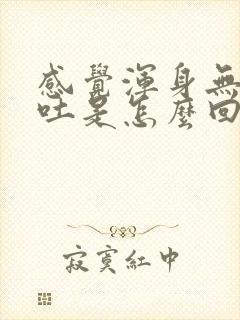 感覺渾身無
吐是怎麼回
寂寞紅中